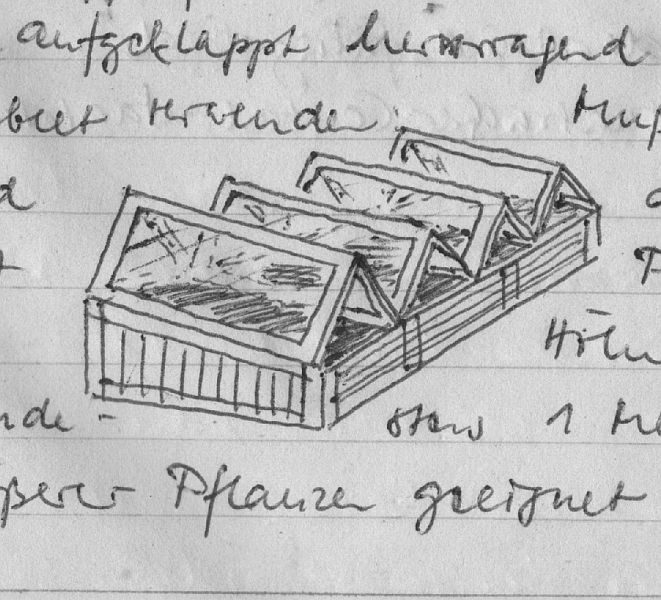 aufgeklappt hervorragend
beet verwenden.
d
t
Höhe
nde-
etwa 1 Me
ßerer Pflanzen geeignet